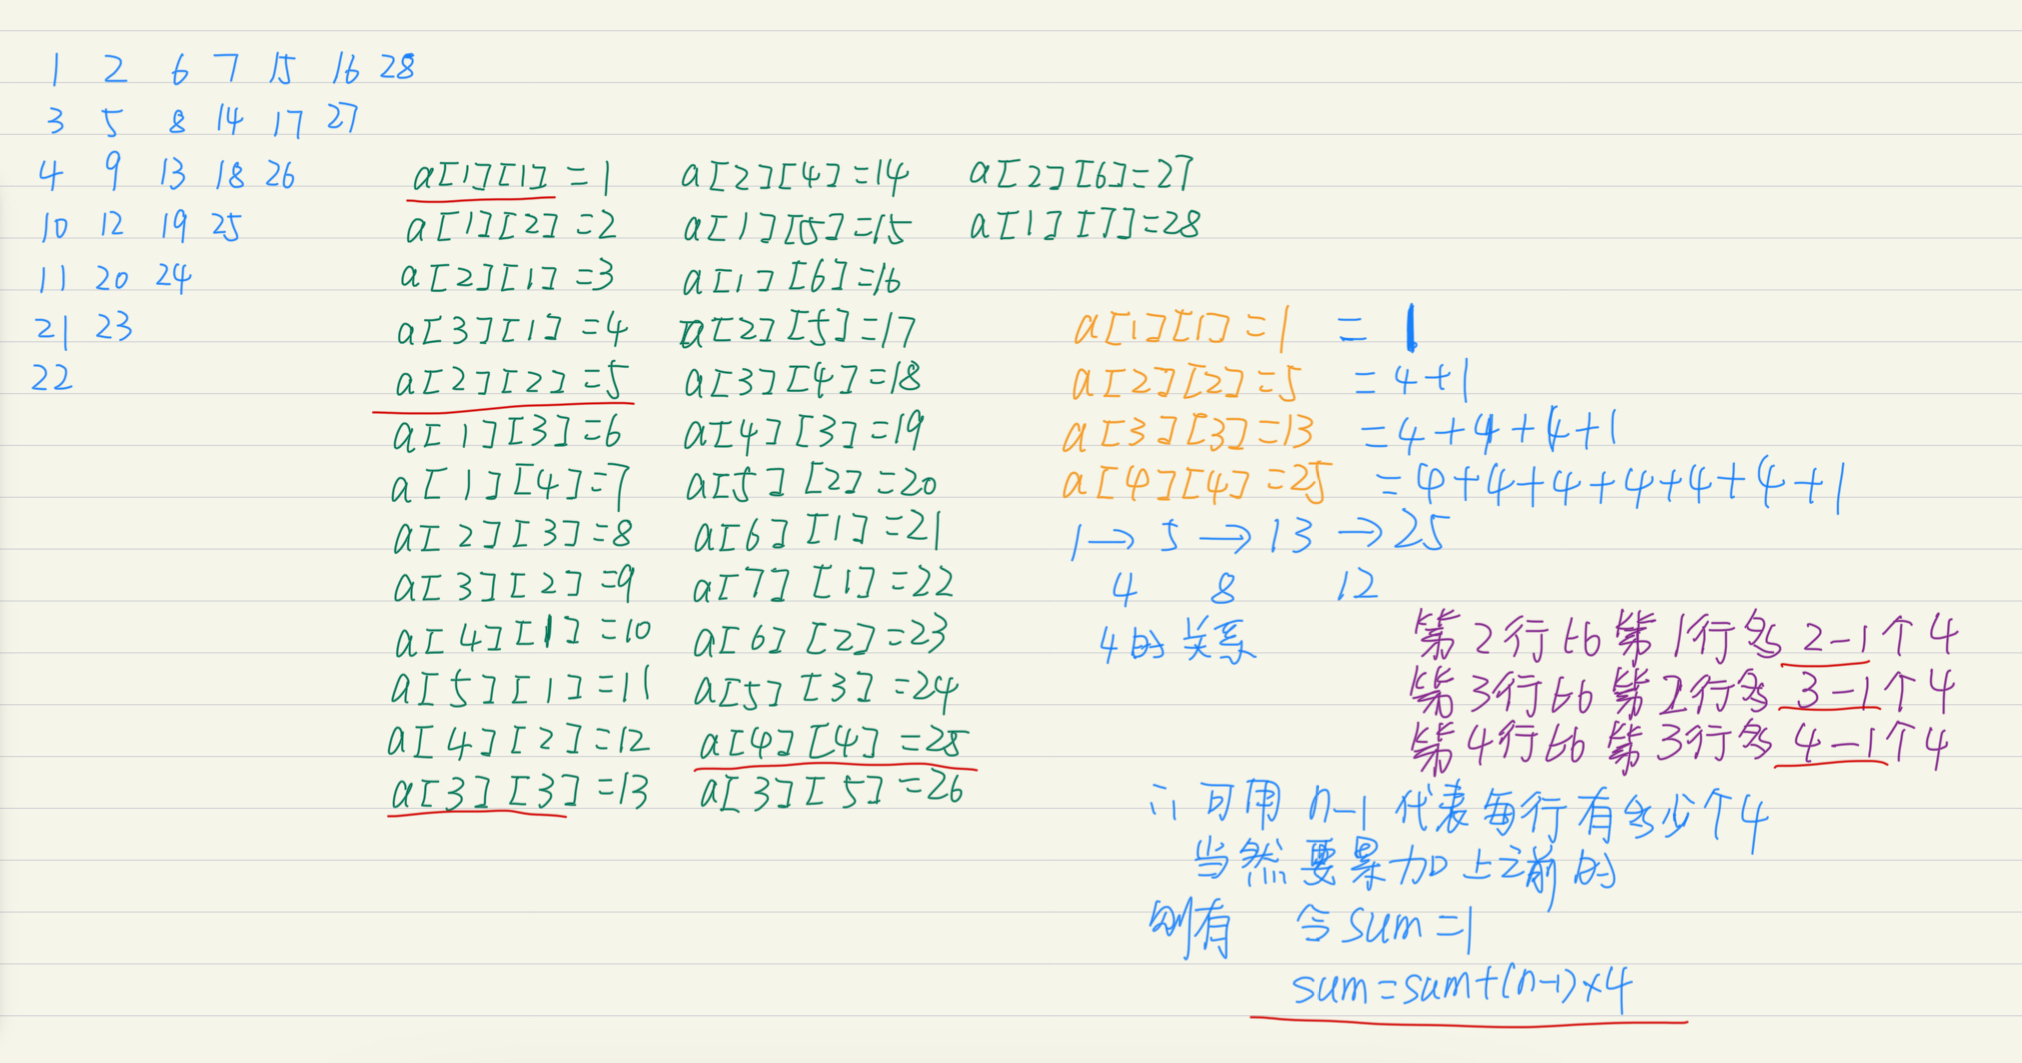 1 2 6 7 15 16 28
3 5 8 14 17 27
4 9 13 18 26
10 12 19 25
11 20 24
21 23
22
a[1][1]=1
a[1][2]=2
a[2][1]=3
a[3][1]=4
a[2][2]=5
a[1][3]=6
a[1][4]=7
a[2][3]=8
a[3][2]=9
a[4][1]=10
a[5][1]=11
a[4][2]=12
a[3][3]=13
a[2][4]=14
a[1][5]=15
a[1][6]=16
a[2][5]=17
a[3][4]=18
a[4][3]=19
a[5][2]=20
a[6][1]=21
a[7][1]=22
a[6][2]=23
a[5][3]=24
a[4][4]=25
a[3][5]=26
a[2][6]=27
a[1][7]=28
a[1][1]=1 = 1
a[2][2]=5 =4+1
a[3][3]=13 =4+4+4+1
a[4][4]=25 =4+4+4+4+4+4+1
1→5→13→25
4 8 12
4的关系
第2行比第1行多2-1个4
第3行比第2行多3-1个4
第4行比第3行多4-1个4
∴可用n-1代表每行有多少个4
当然要累加上之前的
则有 令sum=1
sum=sum+(n-1)×4